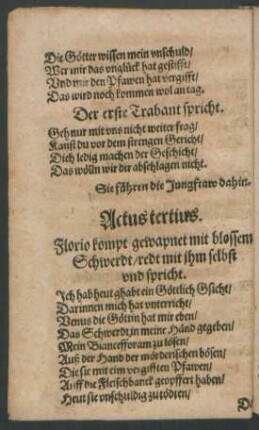 Die Götter wissen mein vnschuld/
Wer mir das vnglück hat gestifft/
Vnd mir den Pfawen hat vergifft/
Das wird noch kommen wol an tag.
Der erste Trabant spricht.
Geh nur mit vns nicht weiter frag/
Kanst du vor dem strengen Gericht/
Dich ledig machen der Geschicht/
Das wölln wir dir abschlagen nicht.
Sie führen die Jungfraw dahin.
Actus tertius.
Florio kompt gewapnet mit blossem
Schwerdt/redt mit ihm selbst
vnd spricht.
Ich hab heut ghabt ein Göttlich Gsicht/
Darinnen mich hat vnterricht/
Venus die Göttin hat mir eben/
Das Schwerdt in meine Händ gegeben/
Mein Biancefforam zu lösen/
Auß der Hand der mörderischen bösen/
Die sie mit eim vergifften Pfawen/
Auff die Fleischbanck geopffert haben/
Heut sie vnschuldig zu tödten/